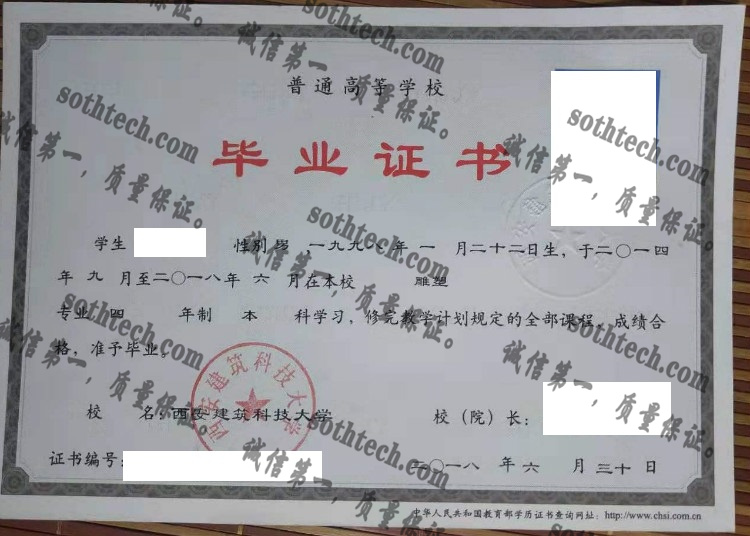 普通高等学校
毕业证书
学生 性别 男 一九九八年 一 月二十二日生，于二〇一四
年 九 月至二〇一八年 六 月在本校 雕塑
专业 四 年制 本 科学习，修完教学计划规定的全部课程，成绩合
格，准予毕业。
校 名：西安建筑科技大学
校（院）长：
西安建筑科技大学
证书编号：
二〇一八 年 六 月 三十 日
中华人民共和国教育部学历证书查询网址：http://www.chsi.com.cn
sothtech.com
诚信第一，质量保证。
sothtech.com
诚信第一，质量保证。
sothtech.com
诚信第一，质量保证。
sothtech.com
诚信第一，质量保证。
sothtech.com
诚信第一，质量保证。
sothtech.com
诚信第一，质量保证。
sothtech.com
诚信第一，质量保证。
sothtech.com
诚信第一，质量保证。
sothtech.com
诚信第一，质量保证。